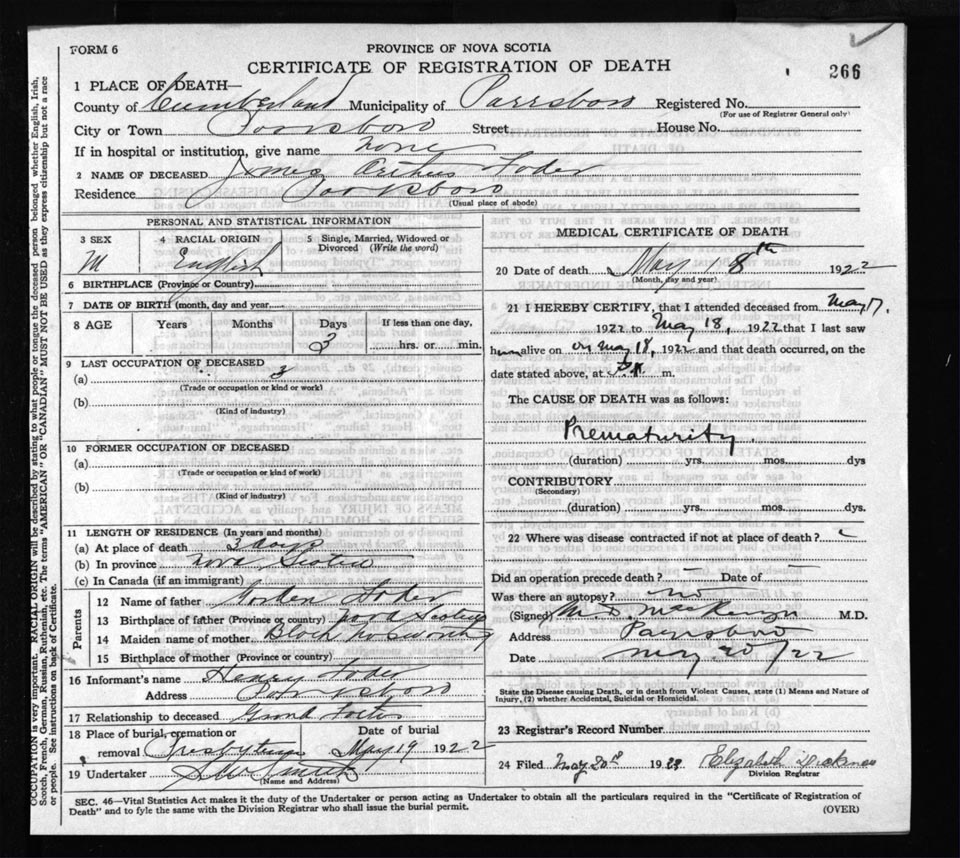 FORM 6
PROVINCE OF NOVA SCOTIA
CERTIFICATE OF REGISTRATION OF DEATH
266
1 PLACE OF DEATH—
County of Cumberland Municipality of Parrsboro Registered No.
(For use of Registrar General only)
City or Town Parrsboro Street House No.
If in hospital or institution, give name none
2 NAME OF DECEASED James
Residence Parrsboro
(Usual place of abode)
PERSONAL AND STATISTICAL INFORMATION
3 SEX M
4 RACIAL ORIGIN English
5 Single, Married, Widowed or Divorced (Write the word)
6 BIRTHPLACE (Province or Country)
7 DATE OF BIRTH (month, day and year)
8 AGE Years Months Days 3 If less than one day, hrs. or min.
9 LAST OCCUPATION OF DECEASED
(a) 3
(Trade or occupation or kind or work)
(b)
(Kind of industry)
10 FORMER OCCUPATION OF DECEASED
(a)
(Trade or occupation or kind of work)
(b)
(Kind of industry)
11 LENGTH OF RESIDENCE (In years and months)
(a) At place of death 3 days
(b) In province Nova Scotia
(c) In Canada (if an immigrant)
Parents
12 Name of father Gordon
13 Birthplace of father (Province or country) Nova Scotia
14 Maiden name of mother
15 Birthplace of mother (Province or country)
16 Informant's name Henry
Address Parrsboro
17 Relationship to deceased Grand
18 Place of burial, cremation or removal Date of burial May 19 1922
19 Undertaker Smith
(Name and Address)
MEDICAL CERTIFICATE OF DEATH
20 Date of death May 18th 1922
(Month, day and year)
21 I HEREBY CERTIFY, that I attended deceased from May 17.
1922 to May 18, 1922 that I last saw
him alive on May 18, 1922 and that death occurred, on the
date stated above, at P.M. m.
The CAUSE OF DEATH was as follows:
Prematurity.
(duration) yrs. mos. dys
CONTRIBUTORY
(Secondary)
(duration) yrs. mos. dys.
22 Where was disease contracted if not at place of death?
Did an operation precede death? — Date of —
Was there an autopsy? no
(Signed) MacKenzie M.D.
Address Parrsboro
Date May 20/22
State the Disease causing Death, or in death from Violent Causes, state (1) Means and Nature of
Injury, (2) whether Accidental, Suicidal or Homicidal.
23 Registrar's Record Number
24 Filed May 20th 1922 Elizabeth
Division Registrar
SEC. 46—Vital Statistics Act makes it the duty of the Undertaker or person acting as Undertaker to obtain all the particulars required in the "Certificate of Registration of
Death" and to fyle the same with the Division Registrar who shall issue the burial permit.
(OVER)
OCCUPATION is very important. RACIAL ORIGIN will be described by stating to what people or tongue the deceased person belonged whether English, Irish,
Scotch, French, German, Russian, Ruthenian, etc. The terms "AMERICAN" OR "CANADIAN" MUST NOT BE USED as they express citizenship but not a race
or people. See instructions on back of Certificate.